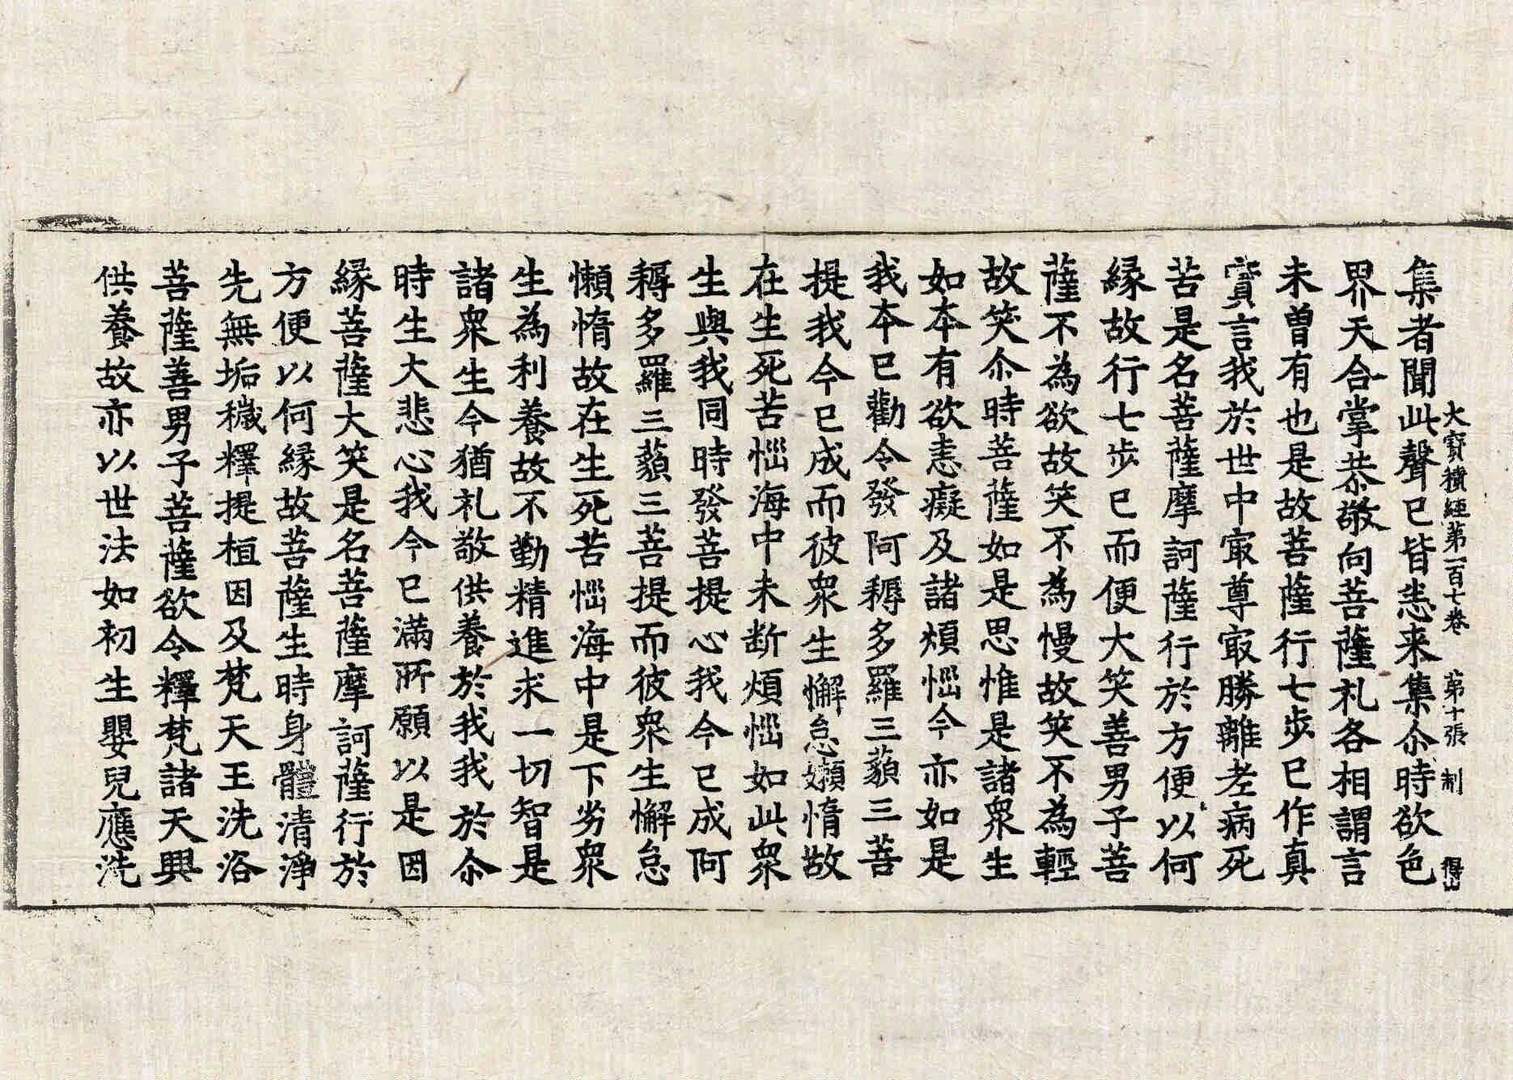 大寶積經第一百七卷　第十張　制　得山
集者聞此聲已皆悉来集尒時欲色
界天合掌恭敬向菩薩礼各相謂言
未曾有也是故菩薩行七步已作真
實言我於世中㝡尊㝡勝離老病死
苦是名菩薩摩訶薩行於方便以何
緣故行七步已而便大笑善男子菩
薩不為欲故笑不為慢故笑不為輕
故笑尒時菩薩如是思惟是諸衆生
如本有欲恚癡及諸煩惱今亦如是
我本已勸令發阿耨多羅三藐三菩
提我今已成而彼衆生懈怠嬾惰故
在生死苦惱海中未斷煩惱如此衆
生與我同時發菩提心我今已成阿
耨多羅三藐三菩提而彼衆生懈怠
懶惰故在生死苦惱海中是下劣衆
生為利養故不勤精進求一切智是
諸衆生今猶礼敬供養於我我於尒
時生大悲心我今已滿所願以是因
緣菩薩大笑是名菩薩摩訶薩行於
方便以何緣故菩薩生時身體清淨
先無垢穢釋提桓因及梵天王洗浴
菩薩善男子菩薩欲令釋梵諸天興
供養故亦以世法如初生嬰兒應洗